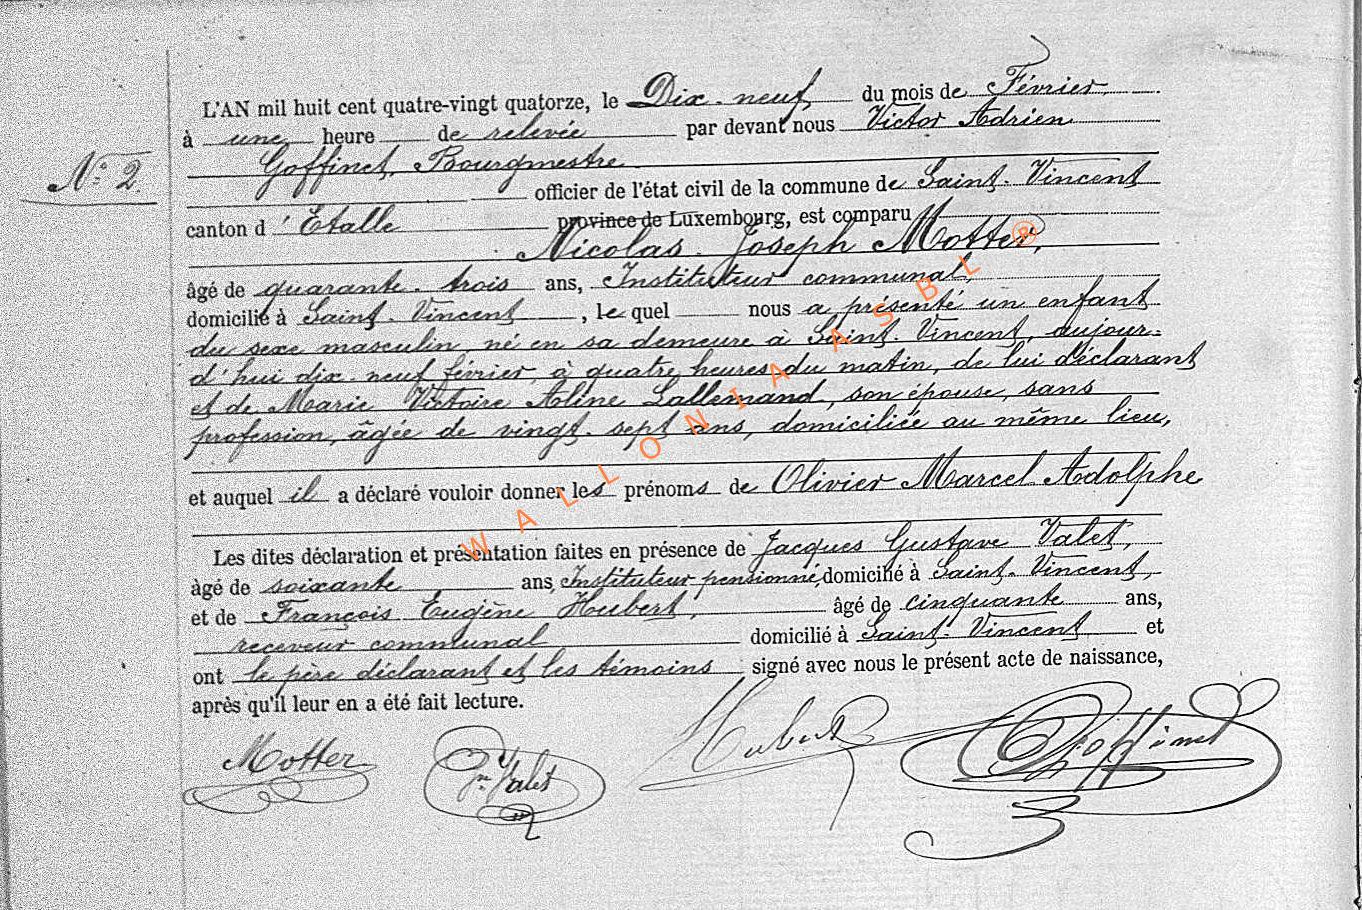 L'AN mil huit cent quatre-vingt quatorze, le Dix-neuf du mois de Février
à une heure de relevée par devant nous Victor Adrien
Goffinet, Bourgmestre
N° 2.
officier de l'état civil de la commune de Saint-Vincent
canton d'Etalle province de Luxembourg, est comparu
Nicolas-Joseph Motter,
âgé de quarante-trois ans, Instituteur communal,
domicilié à Saint-Vincent, lequel nous a présenté un enfant
du sexe masculin, né en sa demeure à Saint-Vincent, aujour-
d'hui dix-neuf février, à quatre heures du matin, de lui déclarant
et de Marie Victoire Aline Lallemand, son épouse, sans
profession, âgée de vingt-sept ans, domiciliée au même lieu,
et auquel il a déclaré vouloir donner les prénoms de Olivier Marcel Adolphe
Les dites déclaration et présentation faites en présence de Jacques Gustave Valet,
âgé de soixante ans, Instituteur pensionné, domicilié à Saint-Vincent,
et de François Eugène Hubert, âgé de cinquante ans,
receveur communal domicilié à Saint-Vincent et
ont le père déclarant et les témoins signé avec nous le présent acte de naissance,
après qu'il leur en a été fait lecture.
Motter Valet Hubert Goffinet
WALLONIA ASBL ®